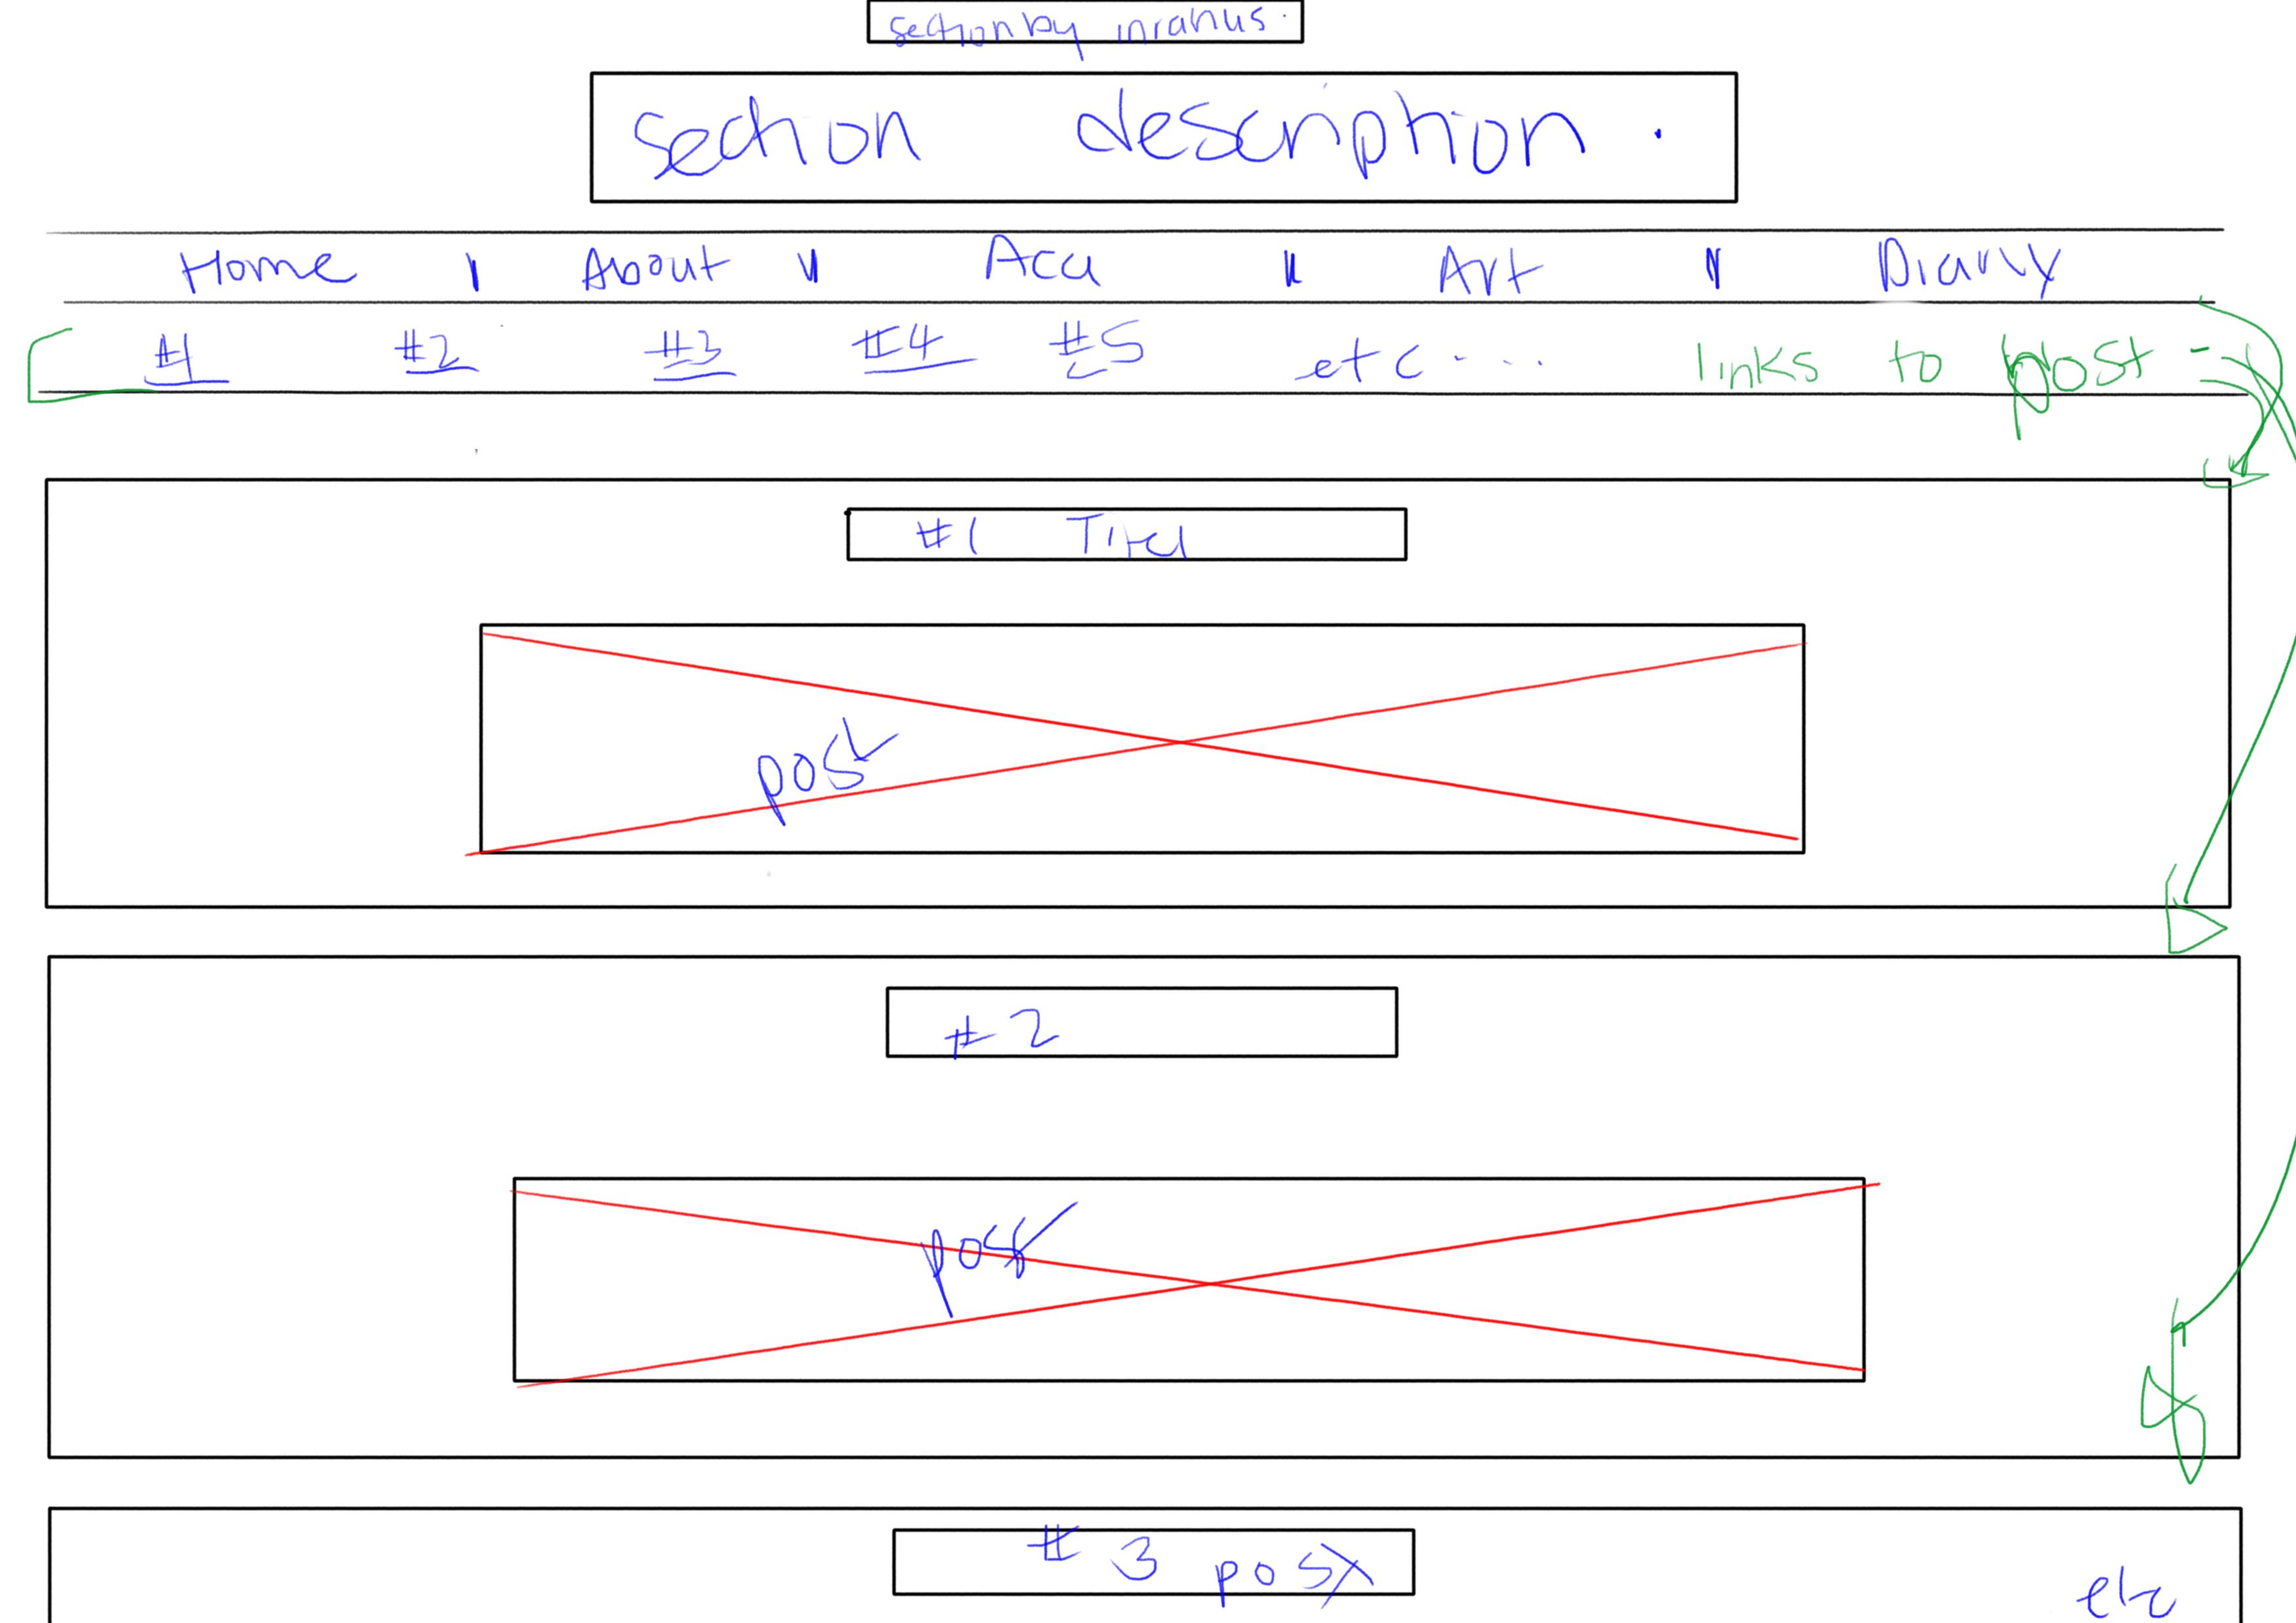 section by
section description.
Home | About | Aca | Art | Diary
#1 #2 #3 #4 #5 etc.... links to post
#1
post
#2
post
#3 post
etc